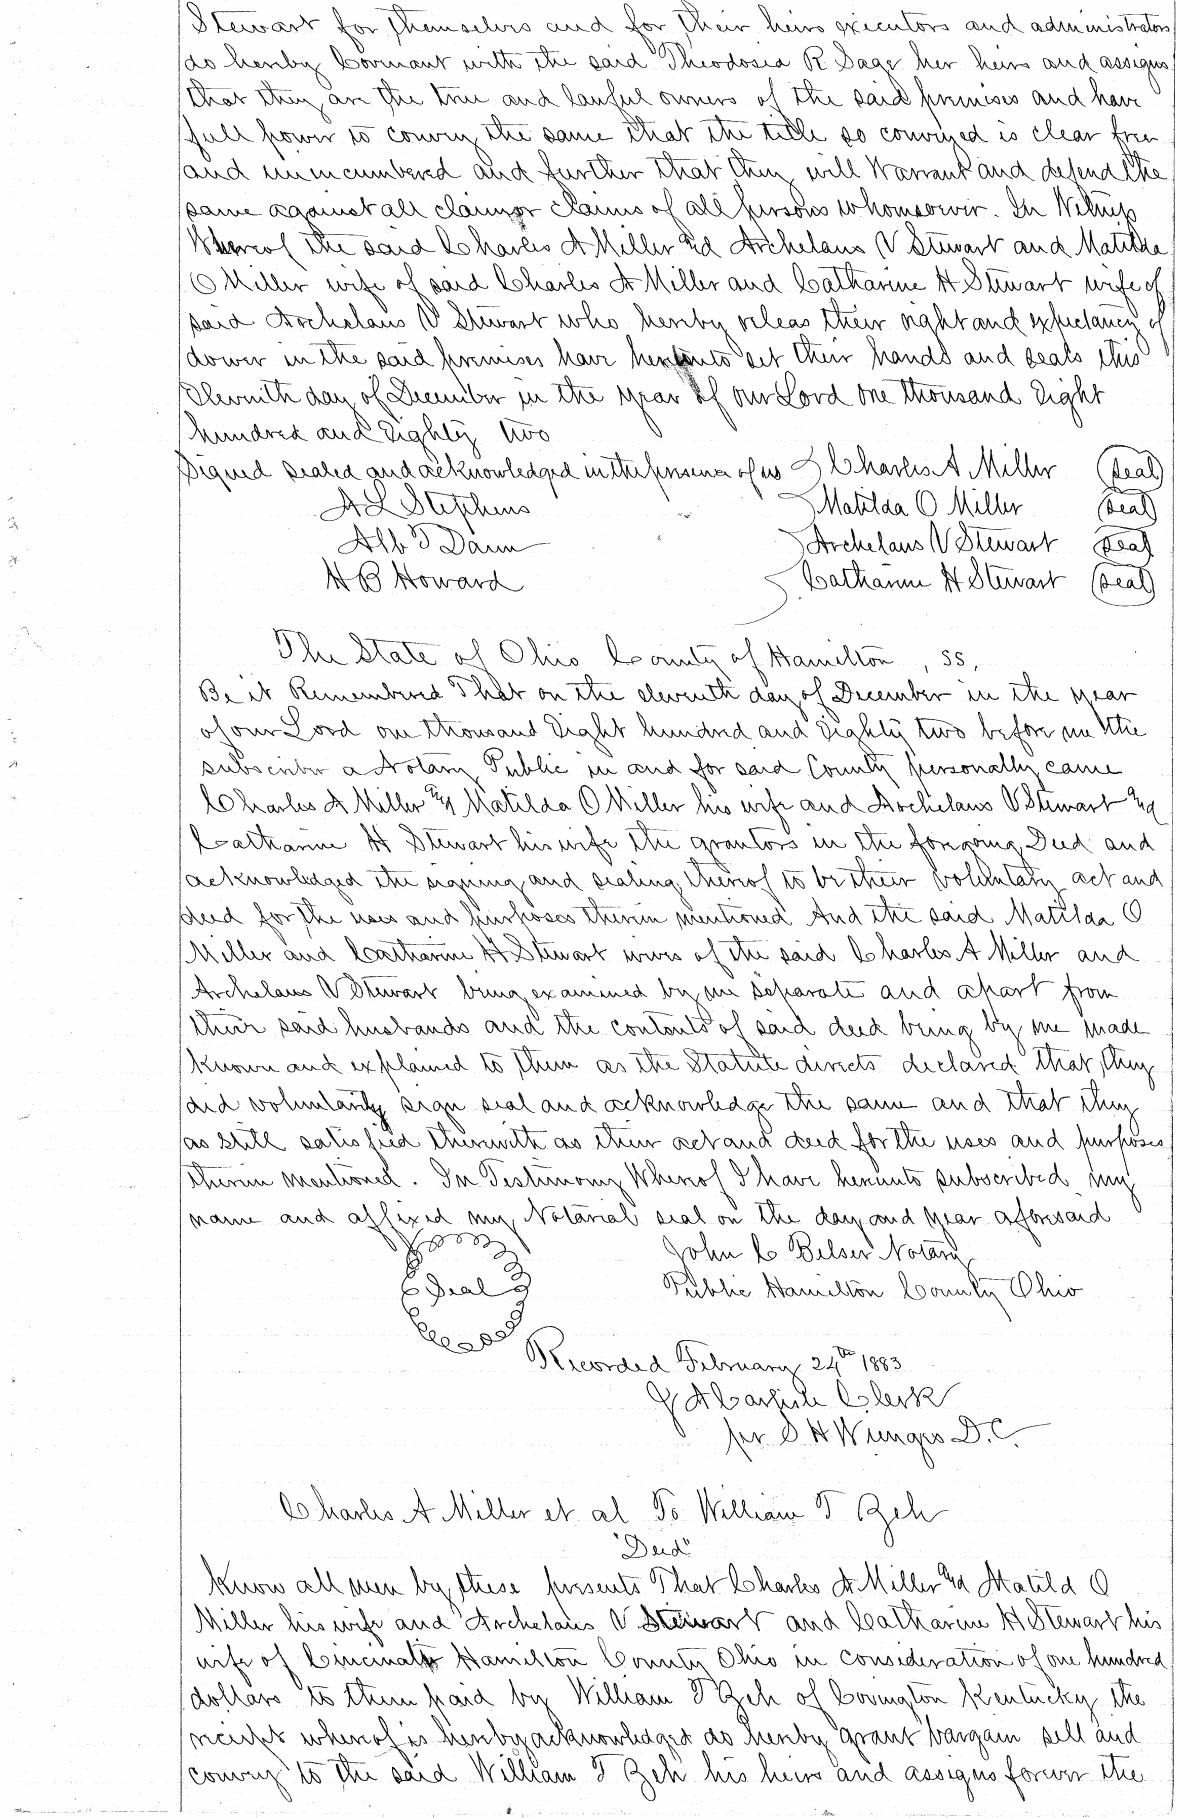 Stewart for themselves and for their heirs executors and administrators
do hereby Covenant with the said Theodosia R Sage her heirs and assigns
that they are the true and lawful owners of the said premises and have
full power to convey the same that the title so conveyed is clear free
and unincumbered and further that they will Warrant and defend the
same against all claim or claims of all persons whomsoever. In Witness
Whereof the said Charles A Miller and Archelaus V Stewart and Matilda
O Miller wife of said Charles A Miller and Catharine H Stewart wife of
said Archelaus V Stewart who hereby releas their right and expectancy of
dower in the said premises have hereunto set their hands and seals this
Eleventh day of December in the year of our Lord one thousand Eight
hundred and Eighty two
Signed sealed and acknowledged in the presence of us Charles A Miller (Seal)
A L Stephens Matilda O Miller (Seal)
Alb T Dann Archelaus V Stewart (Seal)
H B Howard Catharine H Stewart (Seal)
The State of Ohio County of Hamilton , SS,
Be it Remembered That on the eleventh day of December in the year
of our Lord one thousand Eight hundred and Eighty two before me the
subscriber a Notary Public in and for said County personally came
Charles A Miller and Matilda O Miller his wife and Archelaus V Stewart and
Catharine H Stewart his wife the grantors in the foregoing Deed and
acknowledged the signing and sealing thereof to be their voluntary act and
deed for the uses and purposes therein mentioned And the said Matilda O
Miller and Catharine H Stewart wives of the said Charles A Miller and
Archelaus V Stewart being examined by me separate and apart from
their said husbands and the contents of said deed being by me made
known and explained to them as the Statute directs declared that they
did voluntarily sign seal and acknowledge the same and that they
as still satisfied therewith as their act and deed for the uses and purposes
therein mentioned. In Testimony Whereof I have hereunto subscribed my
name and affixed my Notarial seal on the day and year aforesaid
John C Belser Notary
Seal Public Hamilton County Ohio
Recorded February 24th 1883
J A Carlisle Clerk
per S H D.C.
Charles A Miller et al To William T Zeh
"Deed"
Know all men by these presents That Charles A Miller and Matild O
Miller his wife and Archelaus V Stewart and Catharine H Stewart his
wife of Cincinati Hamilton County Ohio in consideration of one hundred
dollars to them paid by William T Zeh of Covington Kentucky the
receipt whereof is hereby acknowledged do hereby grant bargain sell and
convey to the said William T Zeh his heirs and assigns forever the